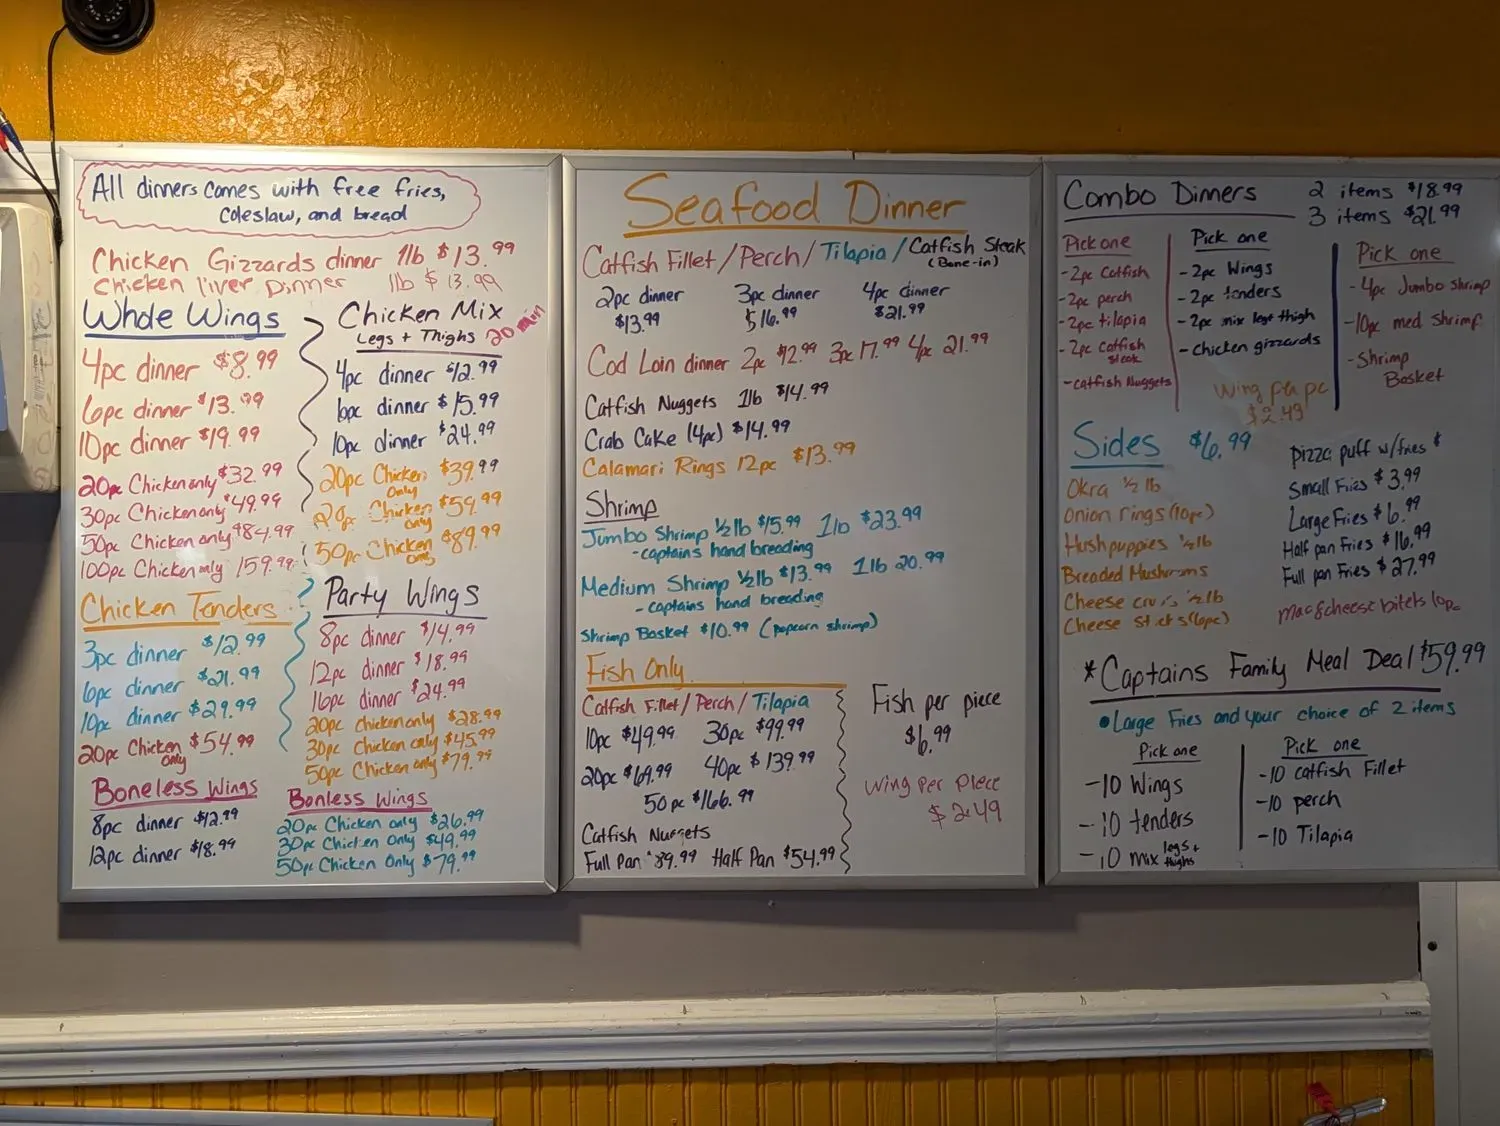 All dinners comes with free fries,
coleslaw, and bread
Chicken Gizzards dinner 1lb $13.99
Chicken liver Dinner 1lb $13.99
Whole Wings
4pc dinner $8.99
6pc dinner $13.99
10pc dinner $19.99
20pc Chicken only $32.99
30pc Chicken only $49.99
50pc Chicken only $84.99
100pc Chicken only 159.99
Chicken Tenders
3pc dinner $12.99
6pc dinner $21.99
10pc dinner $29.99
20pc Chicken only $54.99
Boneless Wings
8pc dinner $12.99
12pc dinner $18.99
Chicken Mix
Legs + Thighs 20 min
4pc dinner $12.99
6pc dinner $15.99
10pc dinner $24.99
20pc Chicken only $39.99
Chicken only $59.99
50pc Chicken only $89.99
Party Wings
8pc dinner $14.99
12pc dinner $18.99
16pc dinner $24.99
20pc chicken only $28.99
30pc Chicken only $45.99
50pc Chicken only $79.99
Bonless Wings
20pc Chicken only $26.99
30pc Chicken Only $49.99
50pc Chicken Only $79.99
Seafood Dinner
Catfish Fillet / Perch / Tilapia / Catfish Steak
(Bone-in)
2pc dinner 3pc dinner 4pc dinner
$13.99 $16.99 $21.99
Cod Loin dinner 2pc $12.99 3pc 17.99 4pc 21.99
Catfish Nuggets 1lb $14.99
Crab Cake (4pc) $14.99
Calamari Rings 12pc $13.99
Shrimp
Jumbo Shrimp ½lb $15.99 1lb $23.99
- captains hand breading
Medium Shrimp ½lb $13.99 1lb 20.99
- captains hand breading
Shrimp Basket $10.99 (popcorn shrimp)
Fish Only
Catfish Fillet / Perch / Tilapia
10pc $49.99 30pc $99.99
20pc $69.99 40pc $139.99
50pc $166.99
Catfish Nuggets
Full Pan $89.99 Half Pan $54.99
Fish per piece
$6.99
Wing Per Piece
$2.49
Combo Dinners 2 items $18.99
3 items $21.99
Pick one
- 2pc Catfish
- 2pc perch
- 2pc tilapia
- 2pc Catfish steak
- catfish Nuggets
Pick one
- 2pc Wings
- 2pc tenders
- 2pc mix legs thigh
- chicken gizzards
Pick one
- 4pc Jumbo shrimp
- 10pc med shrimp
- Shrimp
Basket
Wing per pc
$2.49
Sides $6.99
Okra ½ lb
Onion rings (10pc)
Hushpuppies ½lb
Breaded Mushrooms
Cheese ½lb
Cheese sticks (6pc)
Pizza puff w/fries $
Small Fries $3.99
Large Fries $6.99
Half pan Fries $16.99
Full pan Fries $27.99
mac&cheese bites 10pc
*Captains Family Meal Deal $59.99
• Large Fries and your choice of 2 items
Pick one
- 10 Wings
- 10 tenders
- 10 mix legs + thighs
Pick one
- 10 catfish Fillet
- 10 perch
- 10 Tilapia